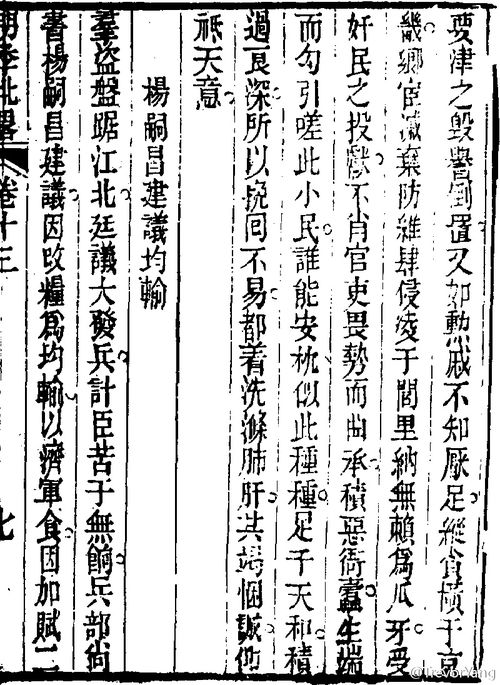 要津之毀譽倒置又如勲戚不知厭足縱貪橫于京
畿鄉官滅棄防維肆侵凌于閭里納無賴爲爪牙受
奸民之投獻不肖官吏畏勢而曲承積惡衙蠹生端
而勾引嗟此小民誰能安枕似此種種足干天和積
過良深所以挽囘不易都着洗滌肺肝共竭悃誠仰
祗天意
楊嗣昌建議均輸
羣盜盤踞江北廷議大發兵計臣苦于無餉兵部尚
書楊嗣昌建議因改糧爲均輸以濟軍食因加賦二
明季北畧 卷十三
@TrevorYang